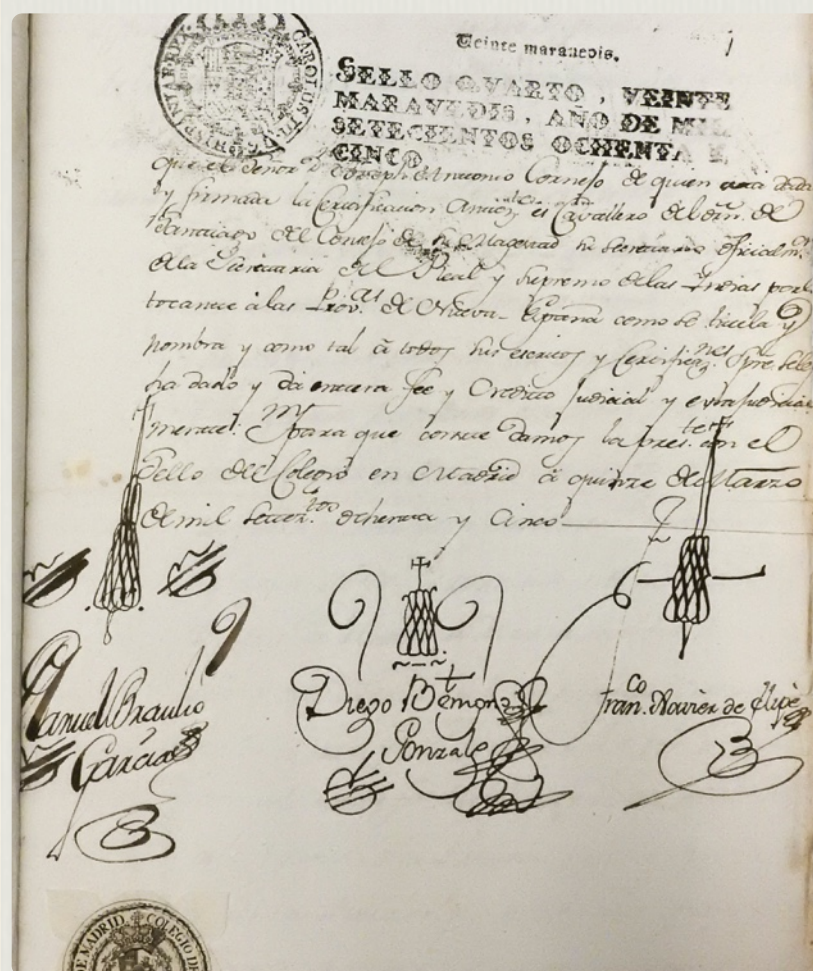 Veinte maravedis.
CAROLUS III. D. G. HISPANIAR. REX
SELLO QVARTO, VEINTE
MARAVEDIS, AÑO DE MIL
SETECIENTOS OCHENTA Y
CINCO.
que el Señor Dn. Antonio Cornejo de quien está dada
y firmada la Certificacion es Cavallero del orn. de
Santiago del Consejo de su Magestad su Secretario oficial
de la Secretaria del Real y Supremo de las Indias por lo
tocante à las Provas. de Nueva España como se titula y
nombra y como tal à todos sus escritos y Certificaznes. spre. se les
ha dado y dá entera fee y Credito Judicial y extrajudicial
mente. Y para que conste damos la preste. con el
Sello del Colegio en Madrid à quinze de Marzo
de mil setectos. ochenta y Cinco
Manuel Braulio
Garcia
Diego
Gonzalez
Franco. Xavier de
DE MADRID COLEGIO DE